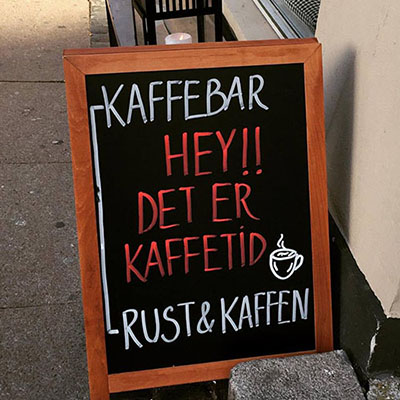 KAFFEBAR
HEY!!
DET ER
KAFFETID
RUST & KAFFEN